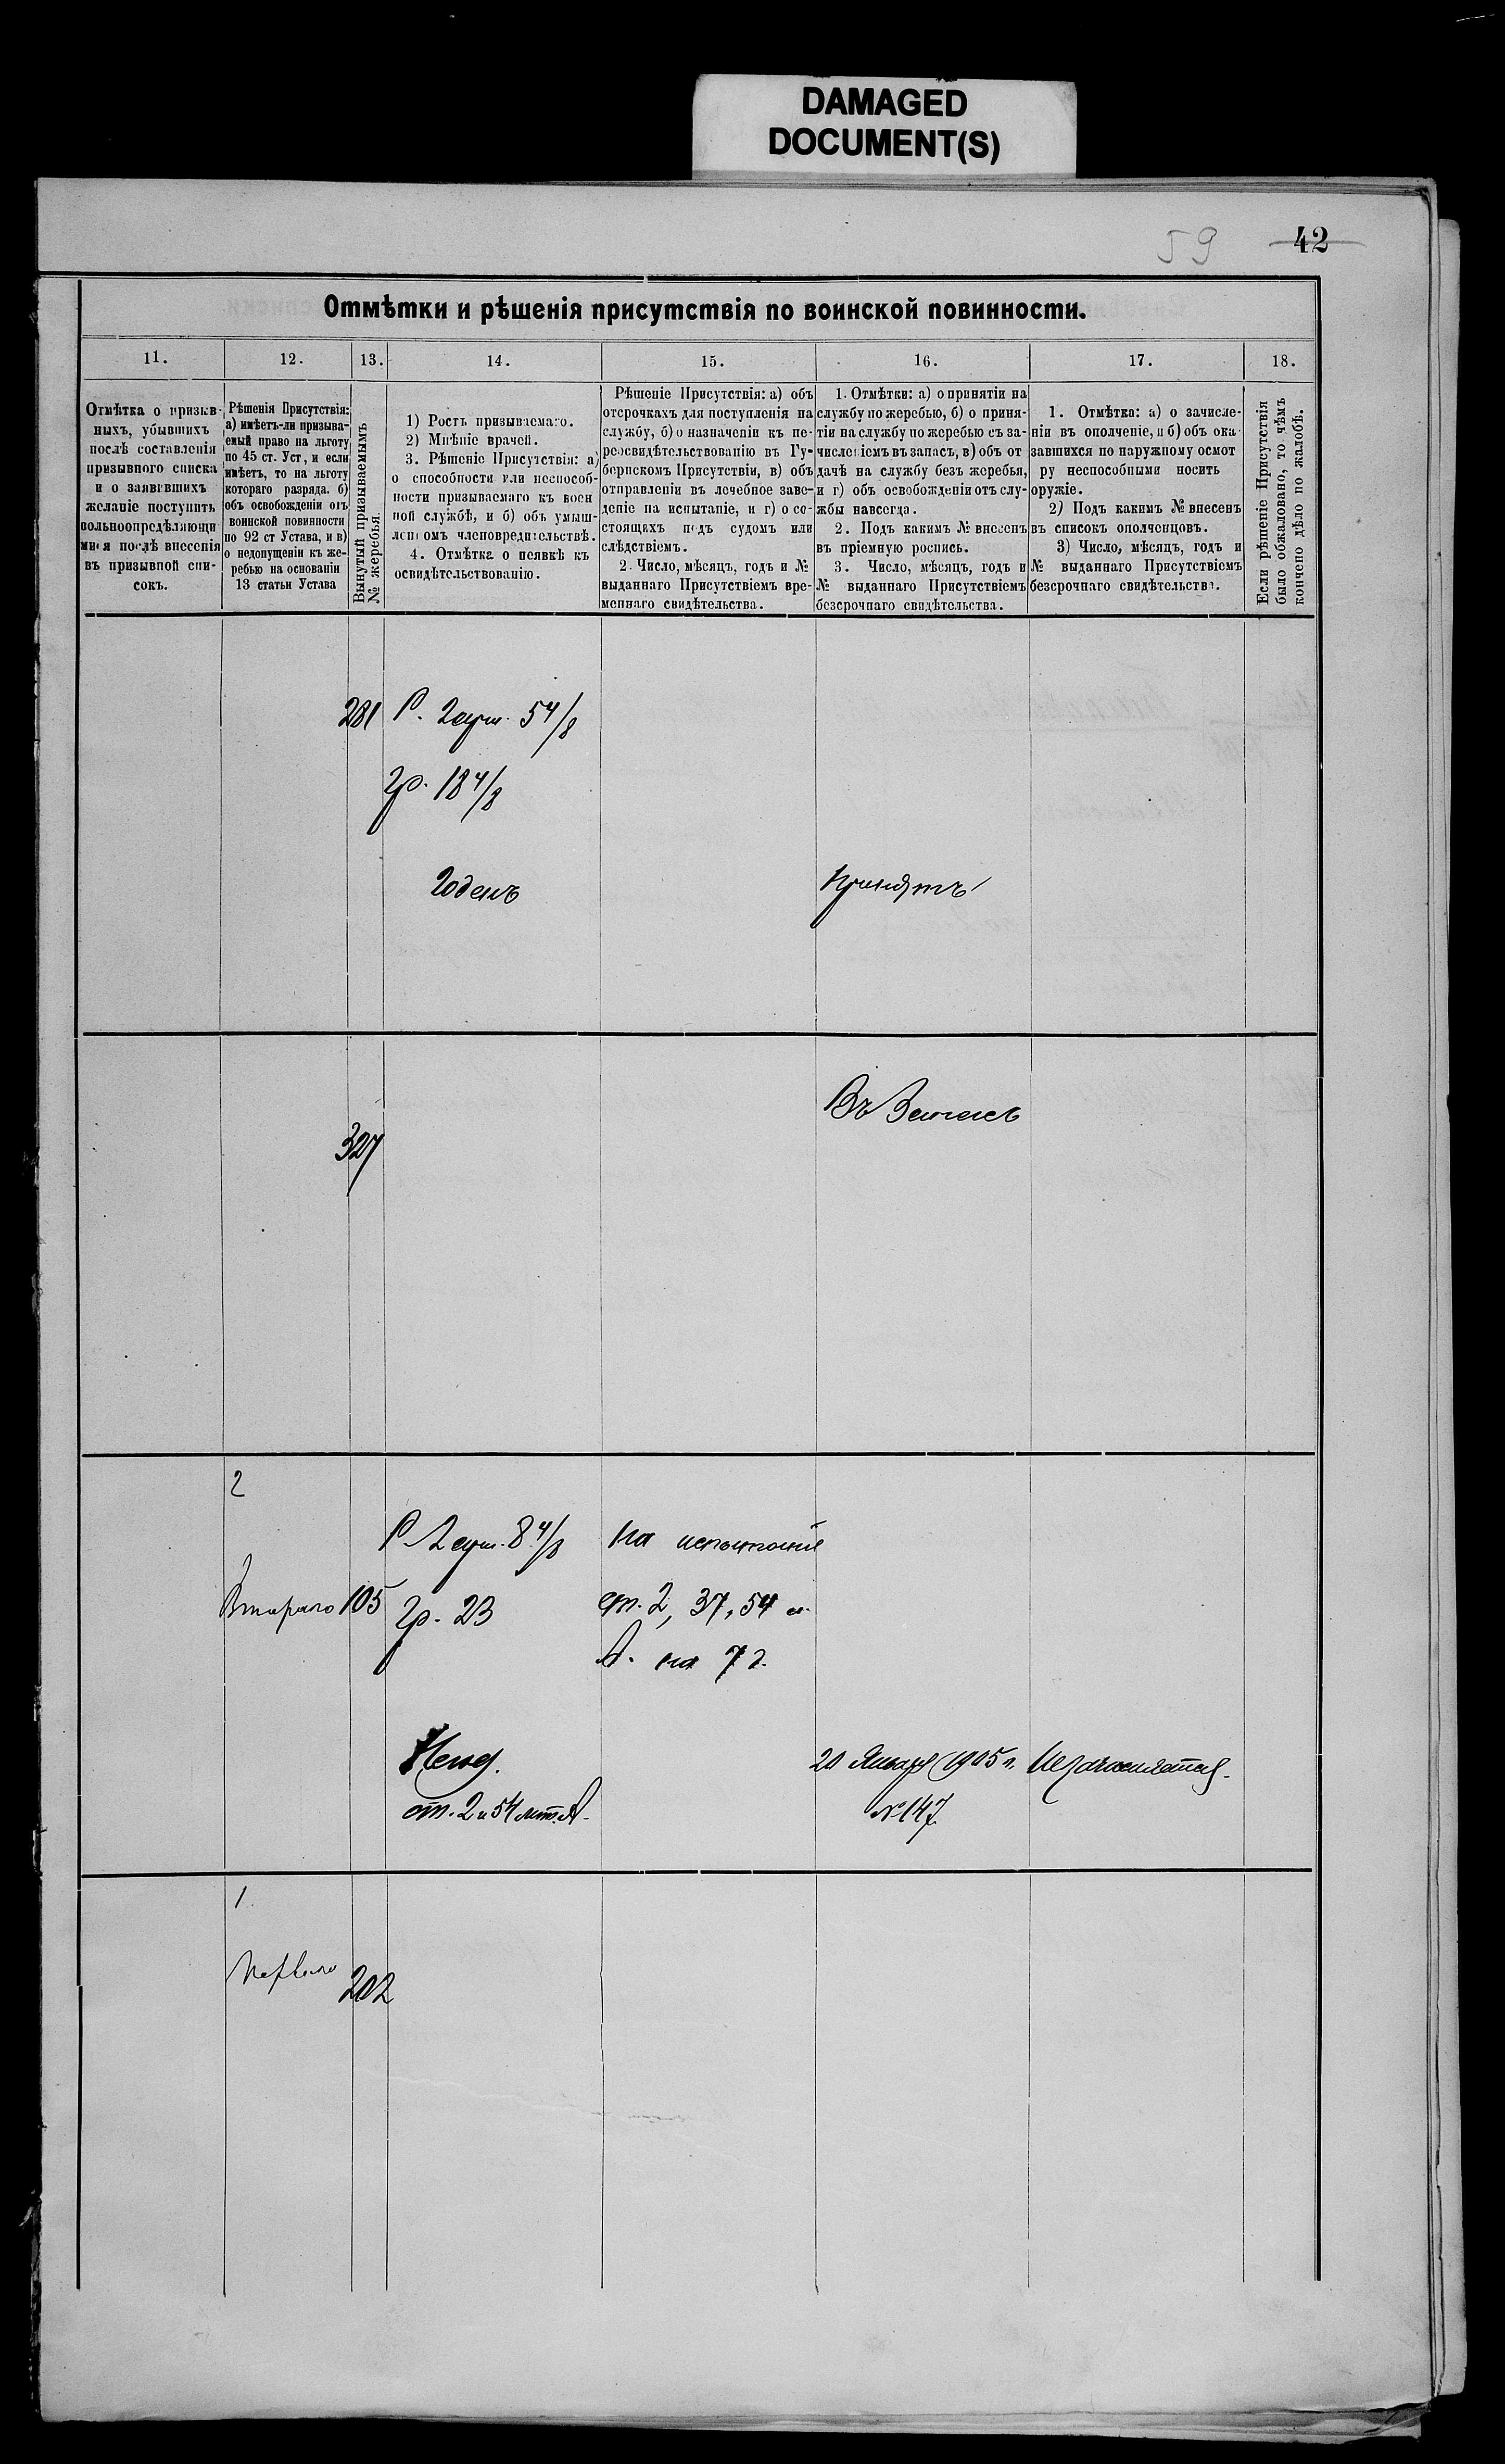 DAMAGED
DOCUMENT(S)
59 42
Отмѣтки и рѣшенія присутствія по воинской повинности.
11. 12. 13. 14. 15. 16. 17. 18.
Отмѣтка о призыв-
ныхъ, убывшихъ
послѣ составленія
призывного списка
и о заявившихъ
желаніе поступить
вольноопредѣляющи
мися послѣ внесенія
въ призывной спи-
сокъ.
Рѣшенія Присутствія:
а) имѣетъ-ли призыва-
емый право на льготу
по 45 ст. Уст, и если
имѣетъ, то на льготу
котораго разряда. б)
объ освобожденіи отъ
воинской повинности
по 92 ст Устава, и в)
о недопущеніи къ же-
ребью на основаніи
13 статьи Устава
Вынутый призываемымъ
№ жеребья.
1) Ростъ призываемаго.
2) Мнѣніе врачей.
3. Рѣшеніе Присутствія: а)
о способности или неспособ-
ности призываемаго къ воен
ной службѣ, и б) объ умыш-
ленномъ членовредительствѣ.
4. Отмѣтка о неявкѣ къ
освидѣтельствованію.
Рѣшеніе Присутствія: а) объ
отсрочкахъ для поступленія на
службу, б) о назначеніи къ пе-
реосвидѣтельствованію въ Гу-
бернскомъ Присутствіи, в) объ
отправленіи въ лечебное заве-
деніе на испытаніе, и г) о со-
стоящахъ подъ судомъ или
слѣдствіемъ.
2. Число, мѣсяцъ, годъ и №
выданнаго Присутствіемъ вре-
меннаго свидѣтельства.
1. Отмѣтки: а) о принятіи на
службу по жеребью, б) о приня-
тіи на службу по жеребью съ за-
численіемъ въ запасъ, в) объ от
дачѣ на службу безъ жеребья,
и г) объ освобожденіи отъ слу-
жбы навсегда.
2. Подъ какимъ № внесенъ
въ пріемную роспись.
3. Число, мѣсяцъ, годъ и
№ выданнаго Присутствіемъ
безсрочнаго свидѣтельства.
1. Отмѣтка: а) о зачисле-
ніи въ ополченіе, и б) объ ока
завшихся по наружному осмот
ру неспособными носить
оружіе.
2) Подъ какимъ № внесенъ
въ списокъ ополченцовъ.
3) Число, мѣсяцъ, годъ и
№ выданнаго Присутствіемъ
безсрочнаго свидѣтельства.
Если рѣшеніе Присутствія
было обжаловано, то чѣмъ
кончено дѣло по жалобѣ.
281 Р. 2 арш. 5 4/8
гр. 18 4/8
Годенъ Принятъ
Въ Запасъ
327
2
Р. 2 арш. 8 4/8 на испытаніе
Второго 105 гр. 23 ст. 2, 37, 54 и
А. на 7 г.
Негод. 20 Января 1905 г. Не зачисляется.
ст. 2 и 54 лит. А. № 147
1
Перваго 202